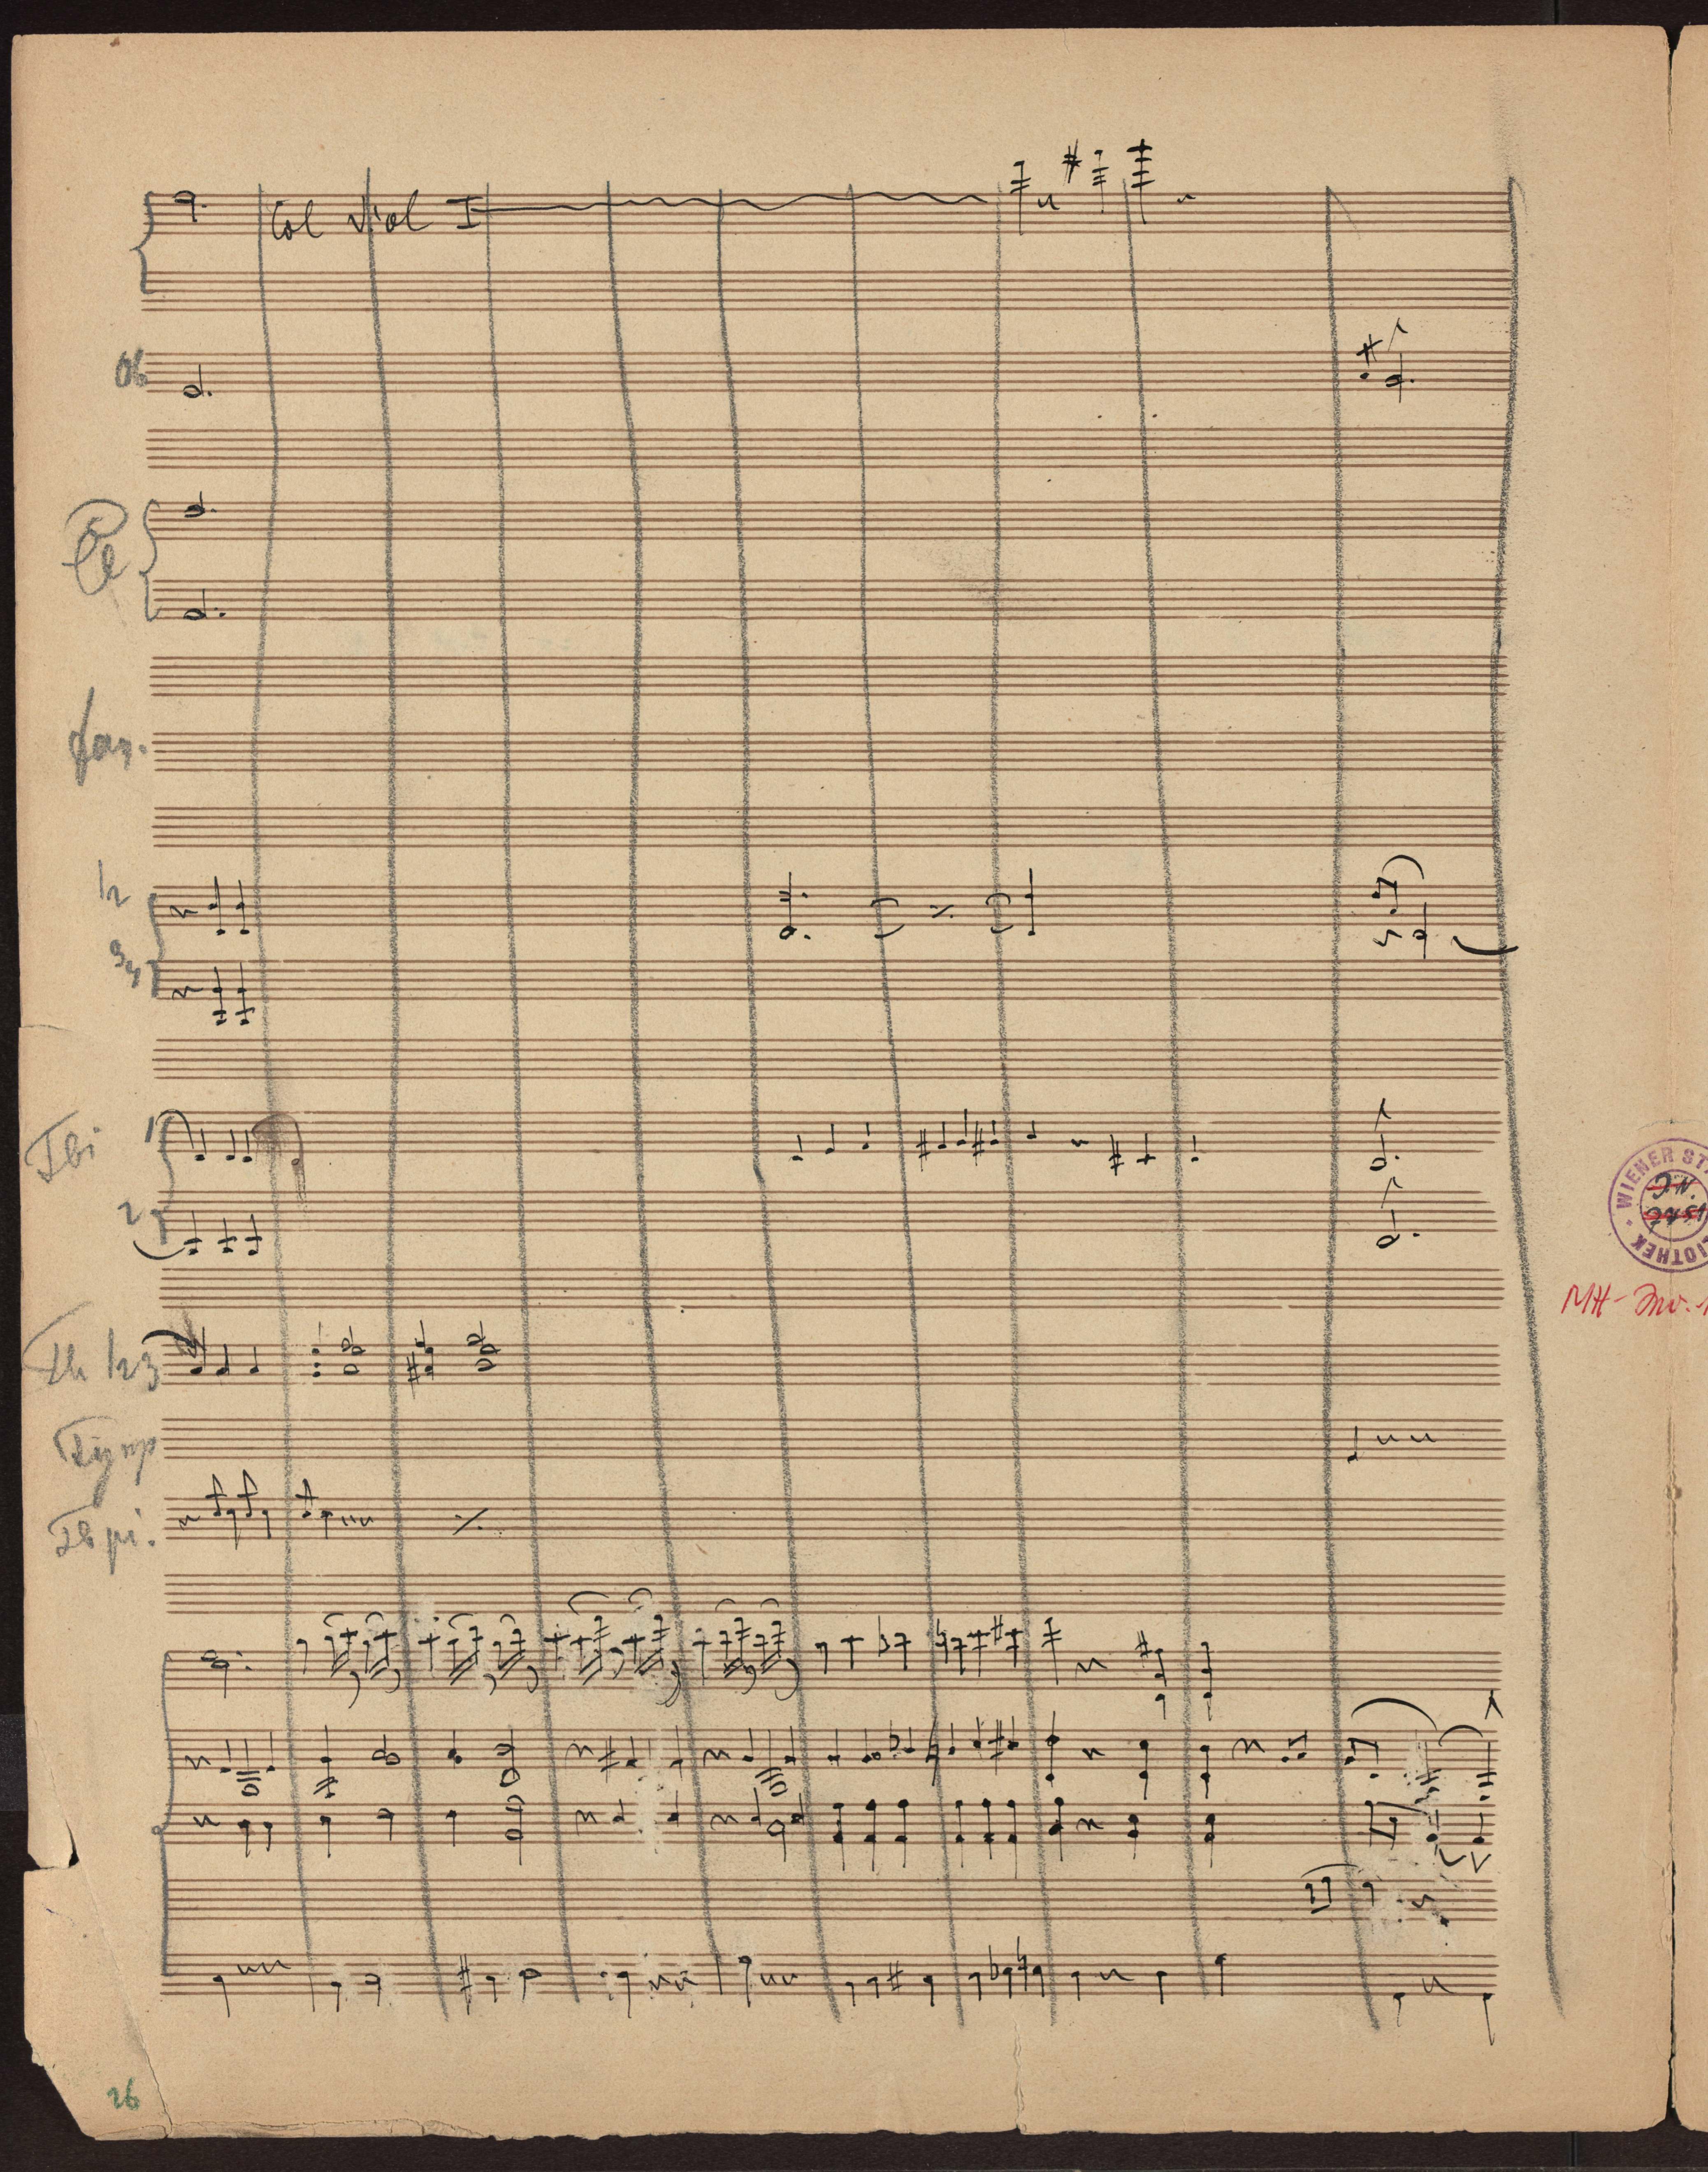 Col Viol I
Ob
Cl
Fag.
1/2
3/4
Tbi
1
2
Th 123
Tymp
26
WIENER ST
LIOTHEK
J.N.
MH-Inv. 1